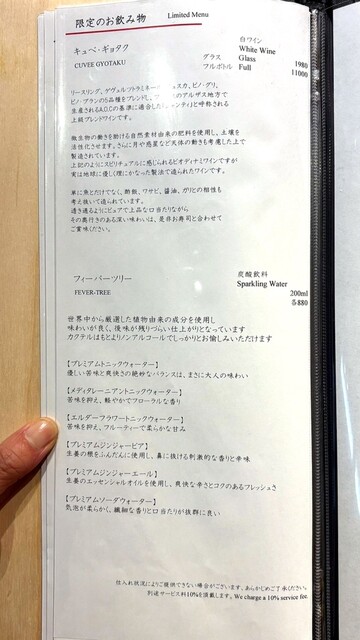 限定のお飲み物 Limited Menu
白ワイン
キュベ・ギョタク White Wine
CUVEE GYOTAKU グラス Glass 1980
フルボトル Full 11000
リースリング、ゲヴュルツトラミネー スカ、ピノ・グリ、
ピノ・ブランの5品種をブレンドし、 のアルザス地方で
生産されるA.O.Cの基準に適合した ンティ」と呼称される
上級ブレンドワインです。
微生物の働きを助ける自然素材由来の肥料を使用し、土壌を
活性化させます。さらに月や惑星など天体の動きも考慮した上で
製造されています。
上記のようにスピリチュアルに感じられるビオディナミワインですが
実は地球に優しく理にかなった製法で造られたワインです。
単に魚とだけでなく、酢飯、ワサビ、醤油、ガリとの相性も
考え抜いて造られています。
透き通るようにピュアで上品な口当たりながら
その奥行きのある深い味わいは、是非お寿司と合わせて
ご賞味ください。
フィーバーツリー 炭酸飲料
FEVER-TREE Sparkling Water
200ml
各880
世界中から厳選した植物由来の成分を使用し
味わいが良く、後味が残りづらい仕上がりとなっています
カクテルはもとよりノンアルコールでしっかりとお愉しみいただけます
【プレミアムトニックウォーター】
優しい苦味と爽快さの絶妙なバランスは、まさに大人の味わい
【メディタレーニアントニックウォーター】
苦味を抑え、軽やかでフローラルな香り
【エルダーフラワートニックウォーター】
苦味を抑え、フルーティーで柔らかな甘み
【プレミアムジンジャービア】
生姜の根をふんだんに使用し、鼻に抜ける刺激的な香りと辛味
【プレミアムジンジャーエール】
生姜のエッセンシャルオイルを使用し、爽快な辛さとコクのあるフレッシュさ
【プレミアムソーダウォーター】
気泡が柔らかく、繊細な香りと口当たりが抜群に良い
仕入れ状況によりご提供できない場合がございます。あらかじめご了承ください。
別途サービス料10%を頂戴します。We charge a 10% service fee.